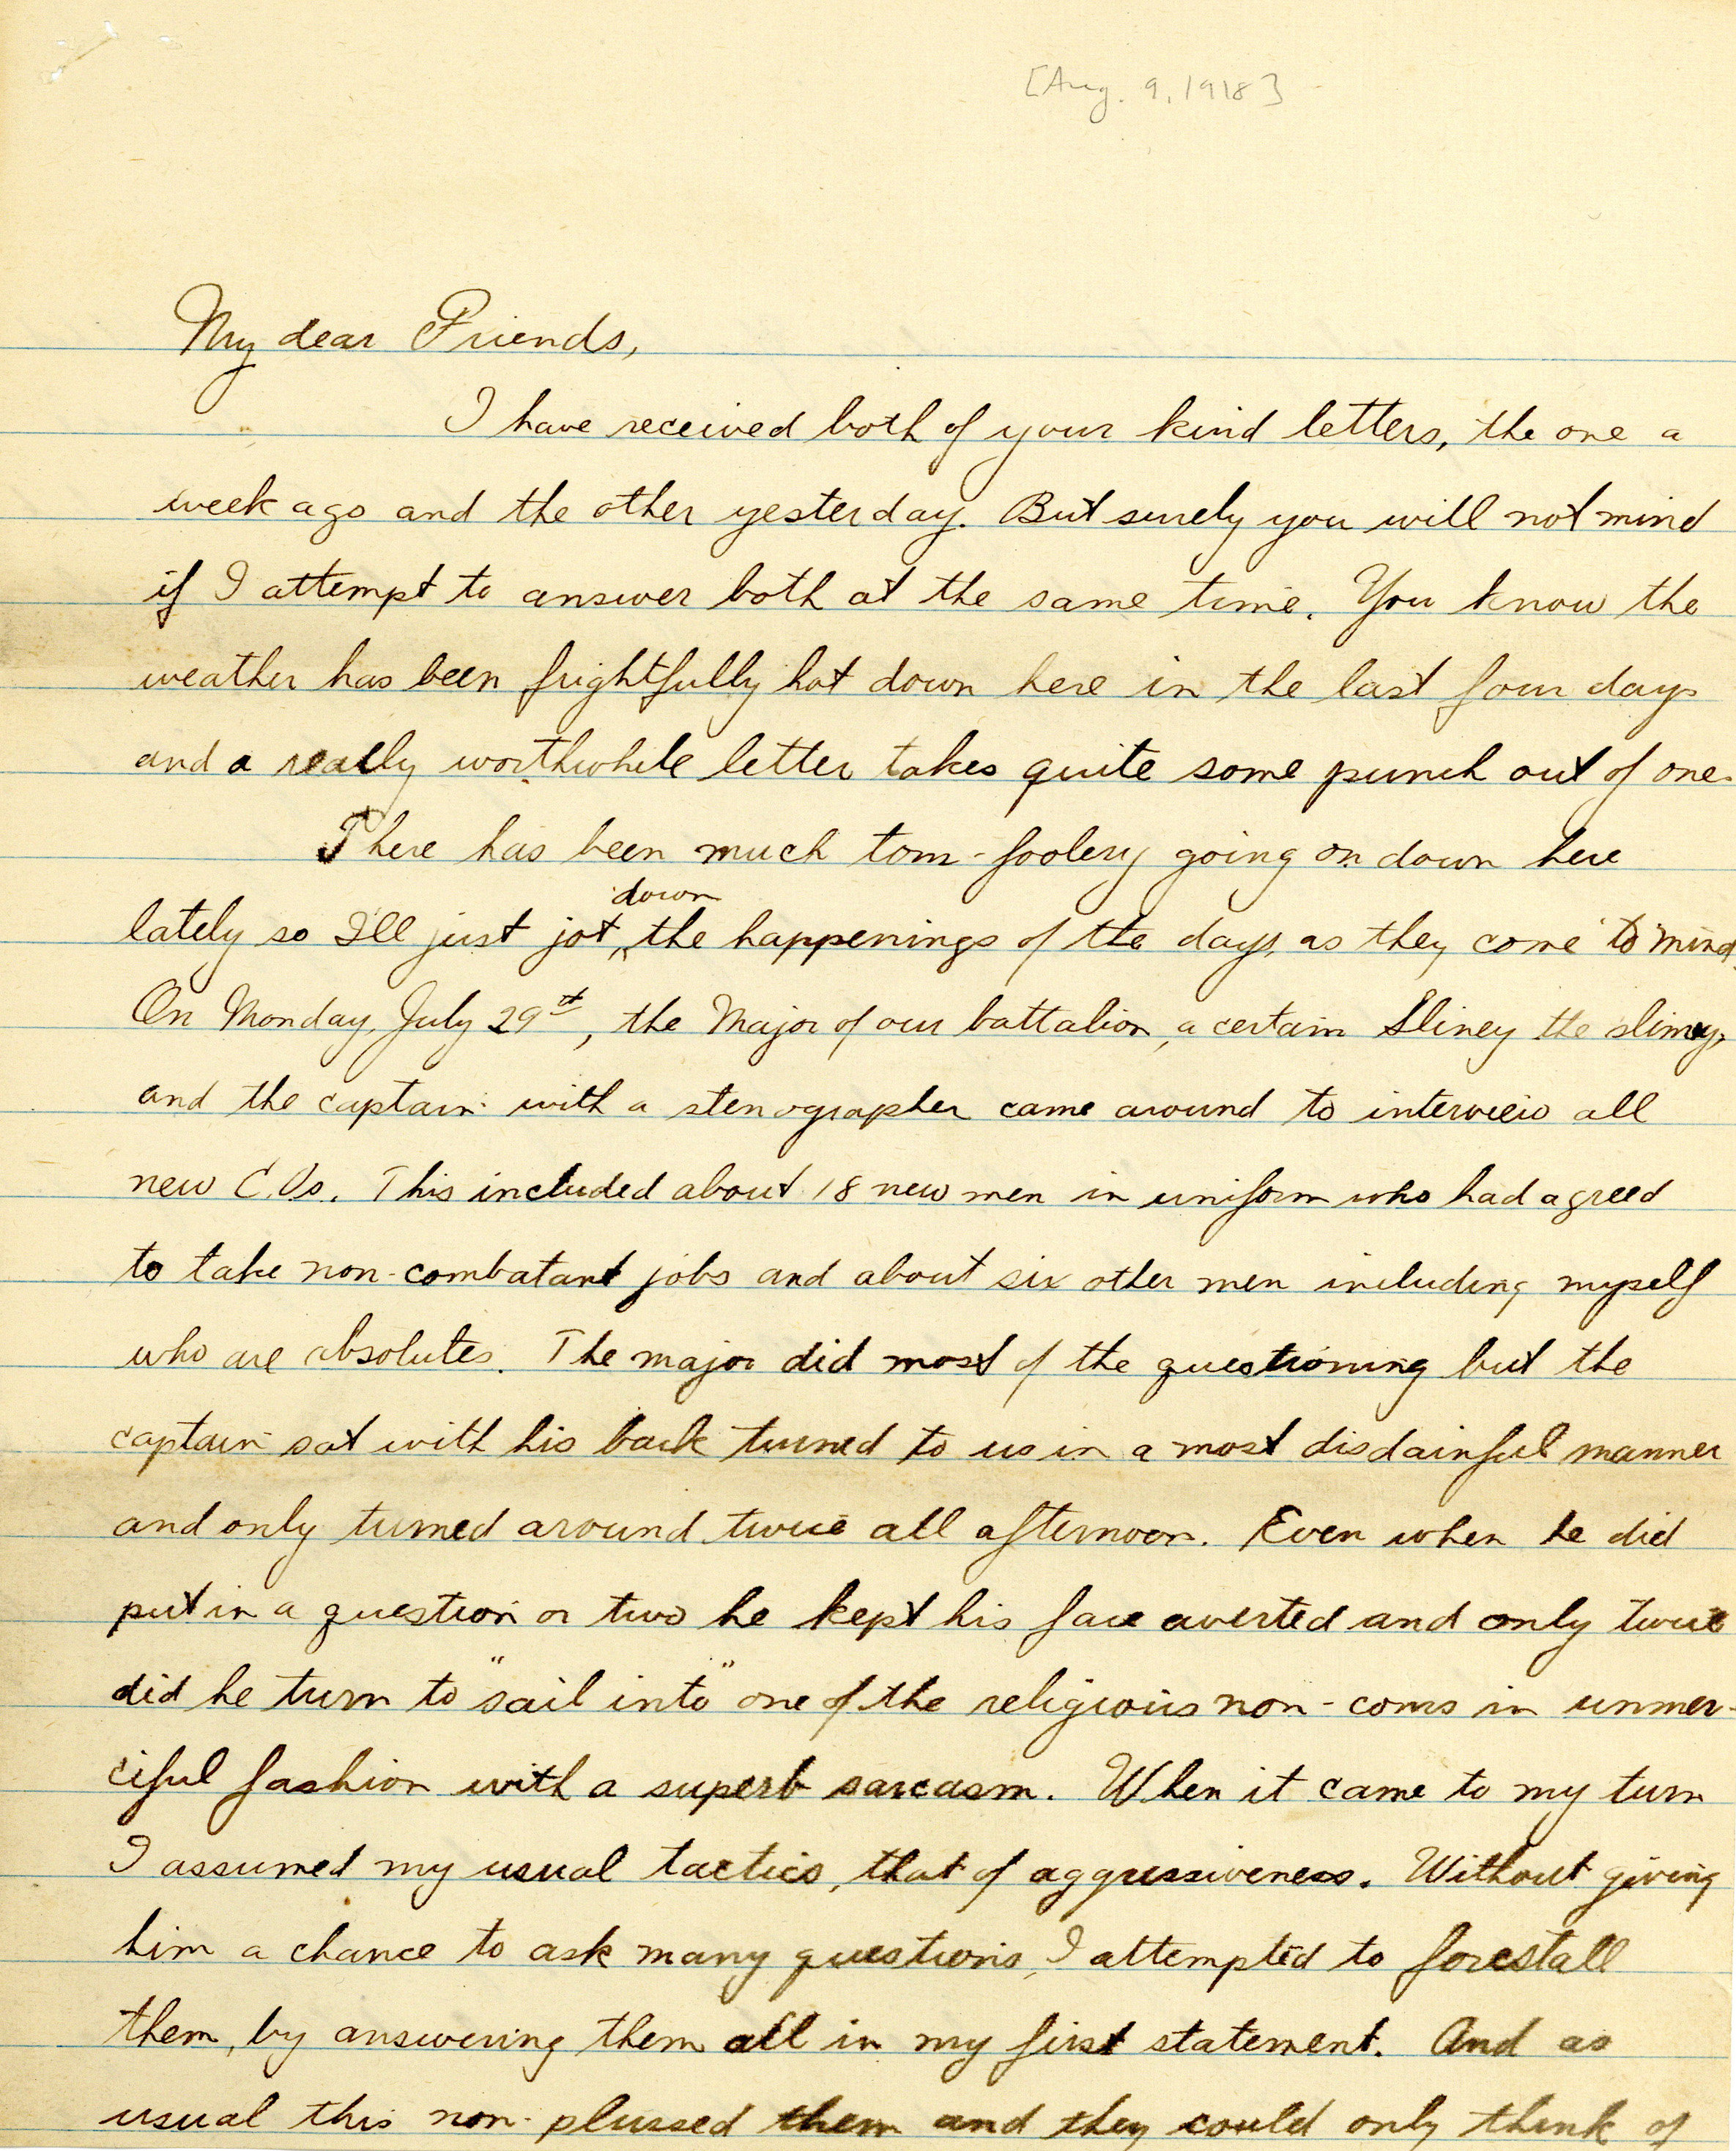 [Aug. 9, 1918]
My dear Friends,
I have received both of your kind letters, the one a
week ago and the other yesterday. But surely you will not mind
if I attempt to answer both at the same time. You know the
weather has been frightfully hot down here in the last four days
and a really worthwhile letter takes quite some punch out of one.
There has been much tom-foolery going on down here
down
lately so I'll just jot the happenings of the days, as they come to mind.
On Monday, July 29th, the Major of our battalion, a certain Sliney the slimy,
and the captain with a stenographer came around to interview all
new C.Os. This included about 18 new men in uniform who had agreed
to take non-combatant jobs and about six other men including myself
who are absolutes. The major did most of the questioning but the
captain sat with his back turned to us in a most disdainful manner
and only turned around twice all afternoon. Even when he did
put in a question or two he kept his face averted and only twice
did he turn to "sail into" one of the religious non-coms in unmer-
ciful fashion with a superb sarcasm. When it came to my turn
I assumed my usual tactics, that of aggressiveness. Without giving
him a chance to ask many questions, I attempted to forestall
them, by answering them all in my first statement. And as
usual this non-plussed them and they could only think of